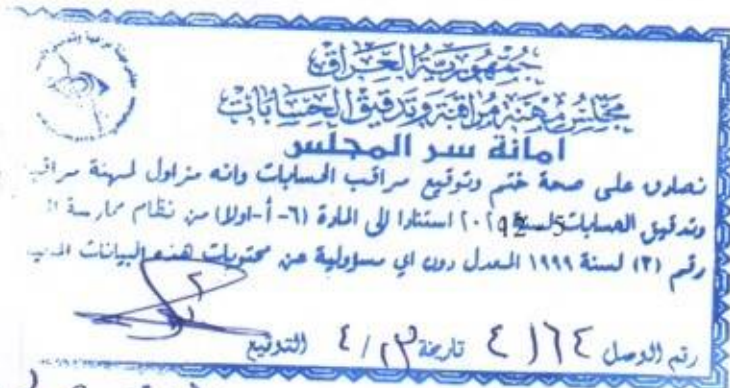 جمهورية العراق
مجلس مهنة مراقبة وتدقيق الحسابات
امانة سر المجلس
نصادق على صحة ختم وتوقيع مراقب الحسابات وانه مزاول لمهنة مراقبـ
وتدقيق الحسابات لسنة ٢٠٢ استنادا الى المادة (٦-أ-اولا) من نظام ممارسة
رقم (٣) لسنة ١٩٩٩ المعدل دون اي مسؤولية عن محتويات هذه البيانات
رقم الوصل ٤١٦٤ تاريخة ٢٣/٤ التوقيع